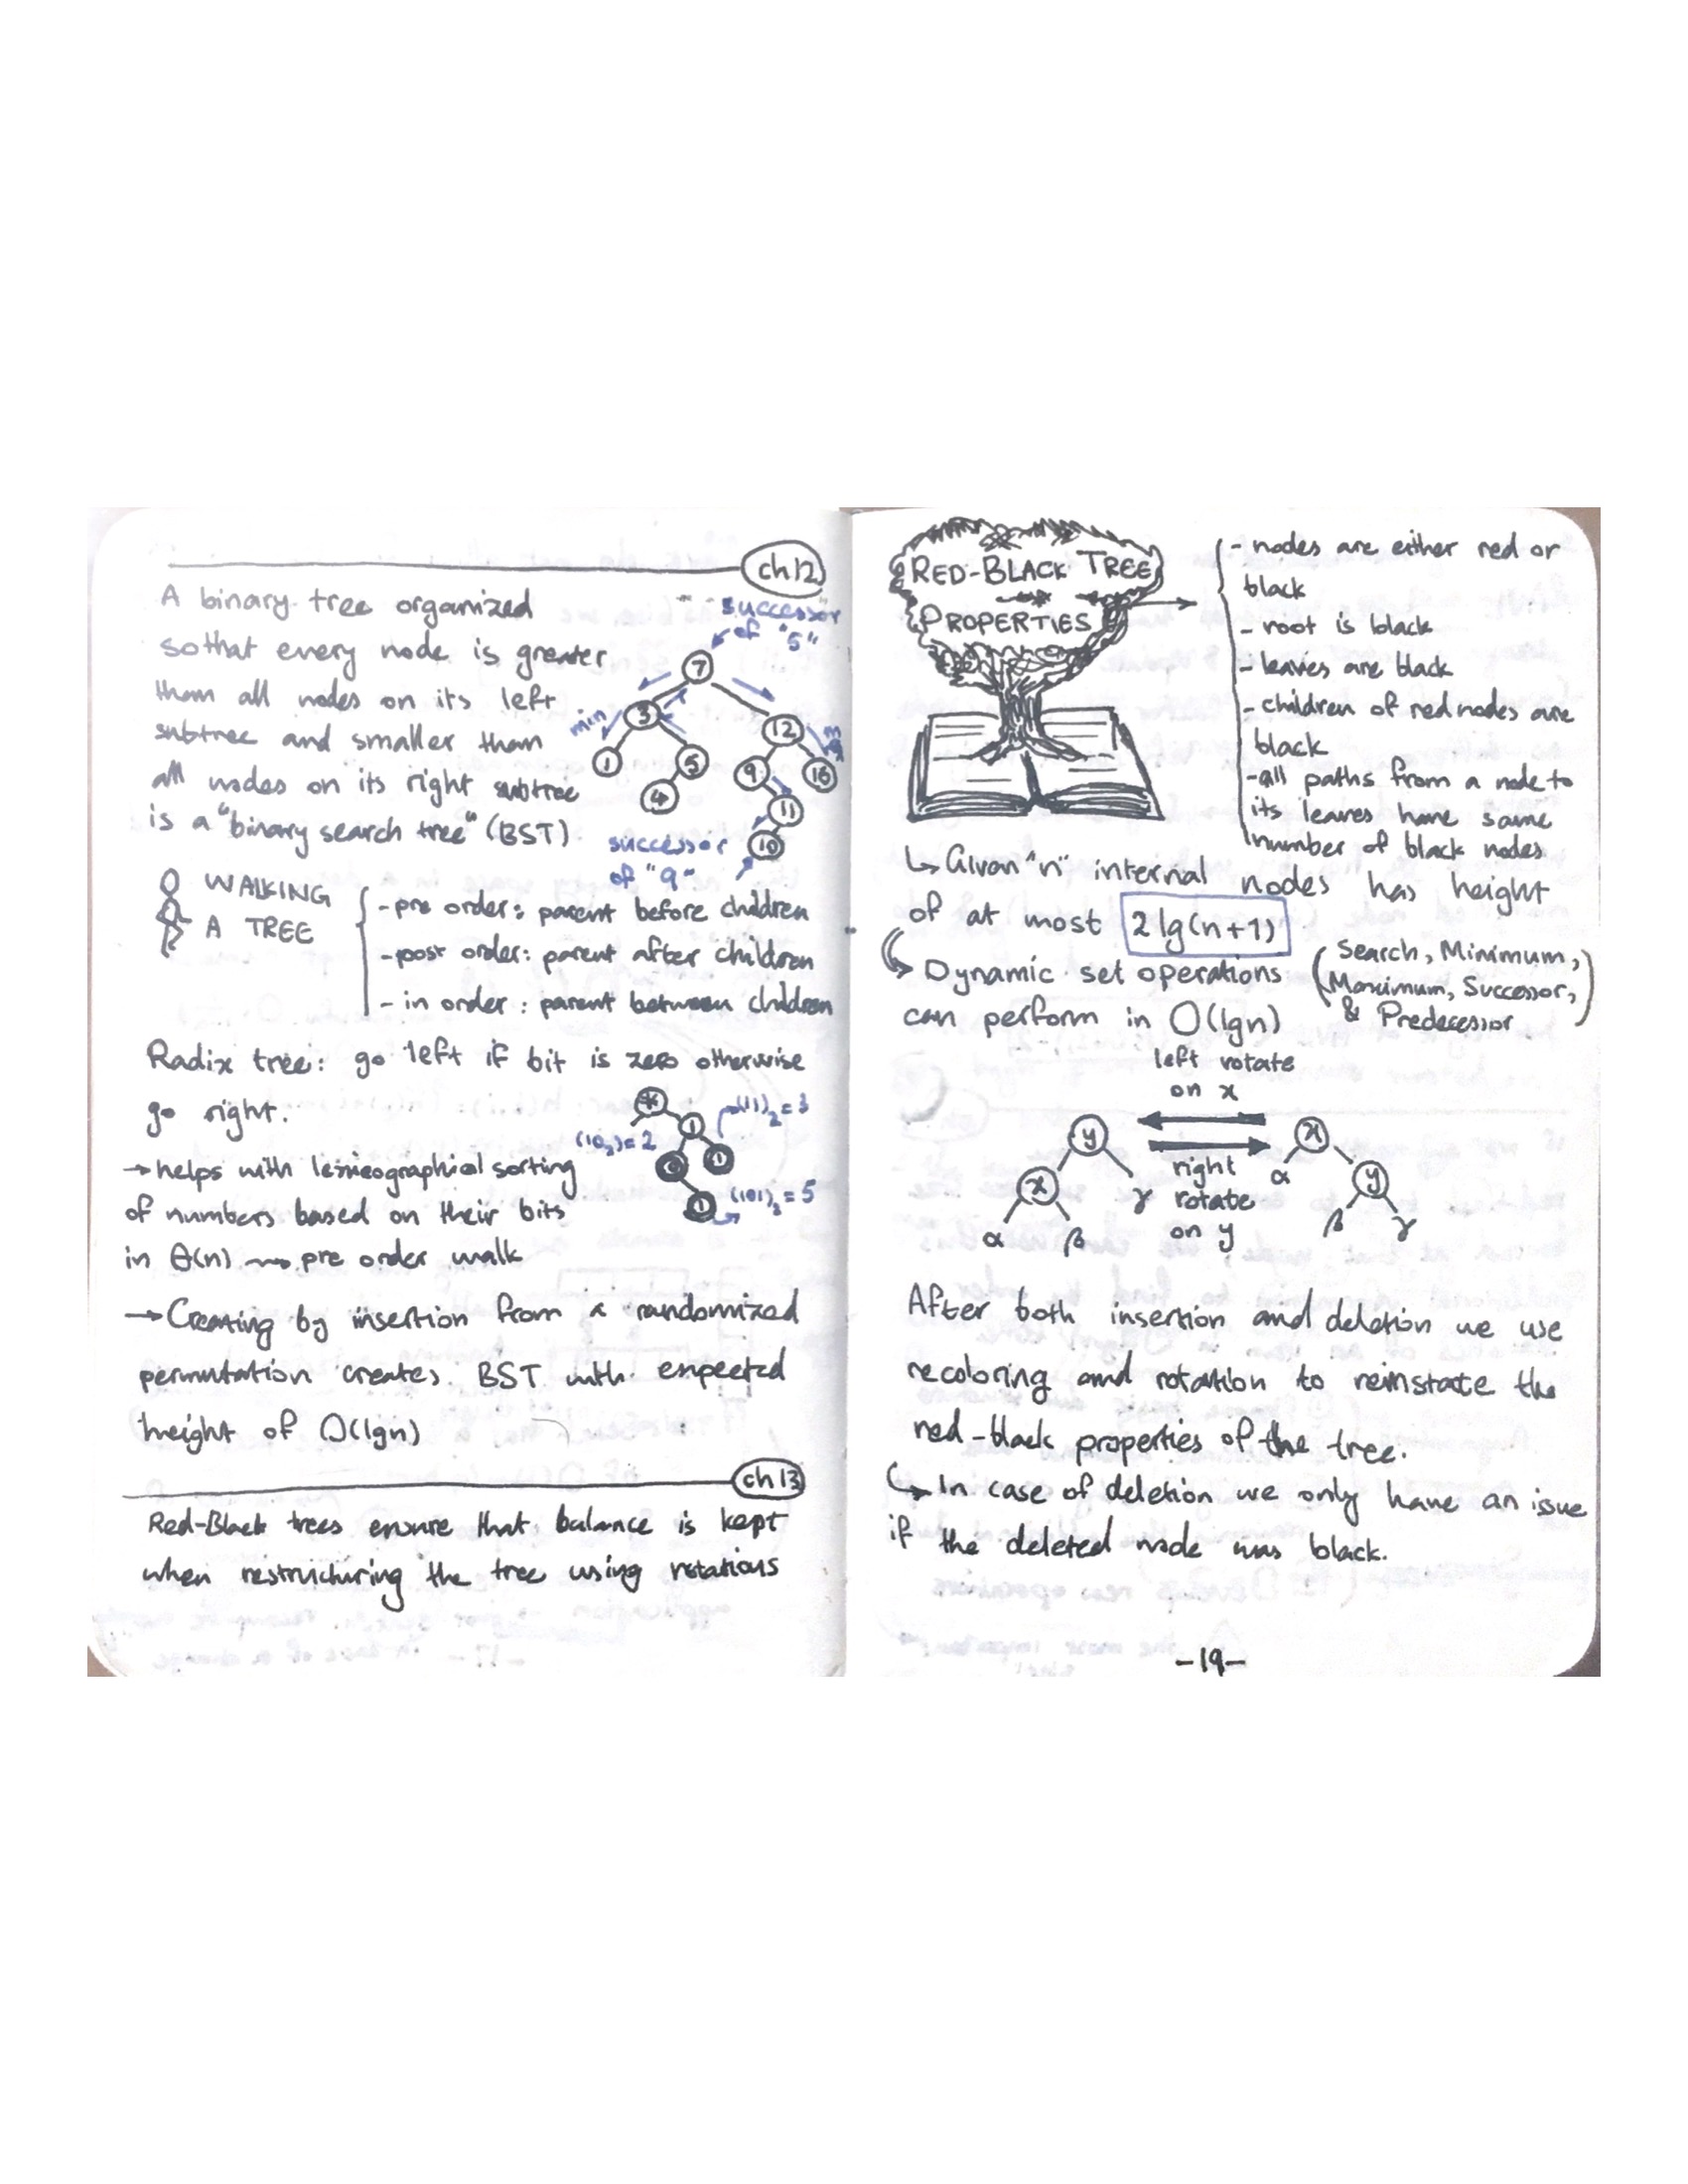 ch 12
A binary tree organized
so that every node is greater
than all nodes on its left
subtree and smaller than
all nodes on its right subtree
is a "binary search tree" (BST)
successor
of "5"
7
3
12
min
max
1
5
9
16
4
11
10
successor
of "9"
WALKING
A TREE
- pre order: parent before children
- post order: parent after children
- in order: parent between children
Radix tree: go left if bit is zero otherwise
go right.
1
(11)₂ = 3
(10₂) = 2
0
1
1
(101)₂ = 5
→ helps with lexicographical sorting
of numbers based on their bits
in Θ(n) ⇝ pre order walk
→ Creating by insertion from a randomized
permutation creates BST with expected
height of O(lgn)
ch 13
Red-Black trees ensure that balance is kept
when restructuring the tree using rotations
RED-BLACK TREE
PROPERTIES
- nodes are either red or
black
- root is black
- leaves are black
- children of red nodes are
black
- all paths from a node to
its leaves have same
number of black nodes
↳ Given "n" internal nodes has height
of at most 2 lg(n+1)
↳ Dynamic set operations
can perform in O(lgn)
(Search, Minimum,
Maximum, Successor,
& Predecessor)
left rotate
on x
y
x
α
β
γ
right
rotate
on y
x
α
y
β
γ
After both insertion and deletion we use
recoloring and rotation to reinstate the
red-black properties of the tree.
↳ In case of deletion we only have an issue
if the deleted node was black.
-19-